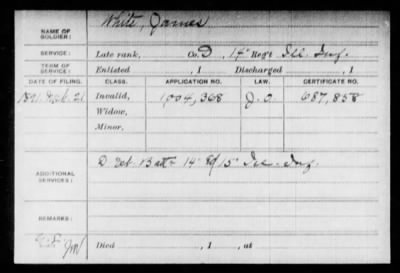 NAME OF SOLDIER: White, James
SERVICE: Late rank, Co. D, 14" Reg't Ill Inf.
TERM OF SERVICE: Enlisted , 1 Discharged , 1
DATE OF FILING. CLASS. APPLICATION NO. LAW. CERTIFICATE NO.
1891 Feb. 21 Invalid, 1,004,368 J.O. 687,858
Widow,
Minor,
ADDITIONAL SERVICES: D Vet. Batt. 14" & 15" Ill. Inf.
REMARKS:
Died , 1 , at